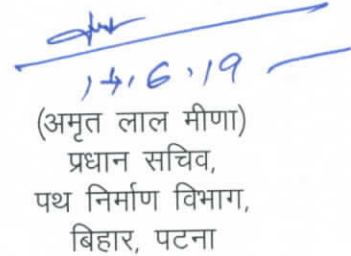 14.6.19
(अमृत लाल मीणा)
प्रधान सचिव,
पथ निर्माण विभाग,
बिहार, पटना